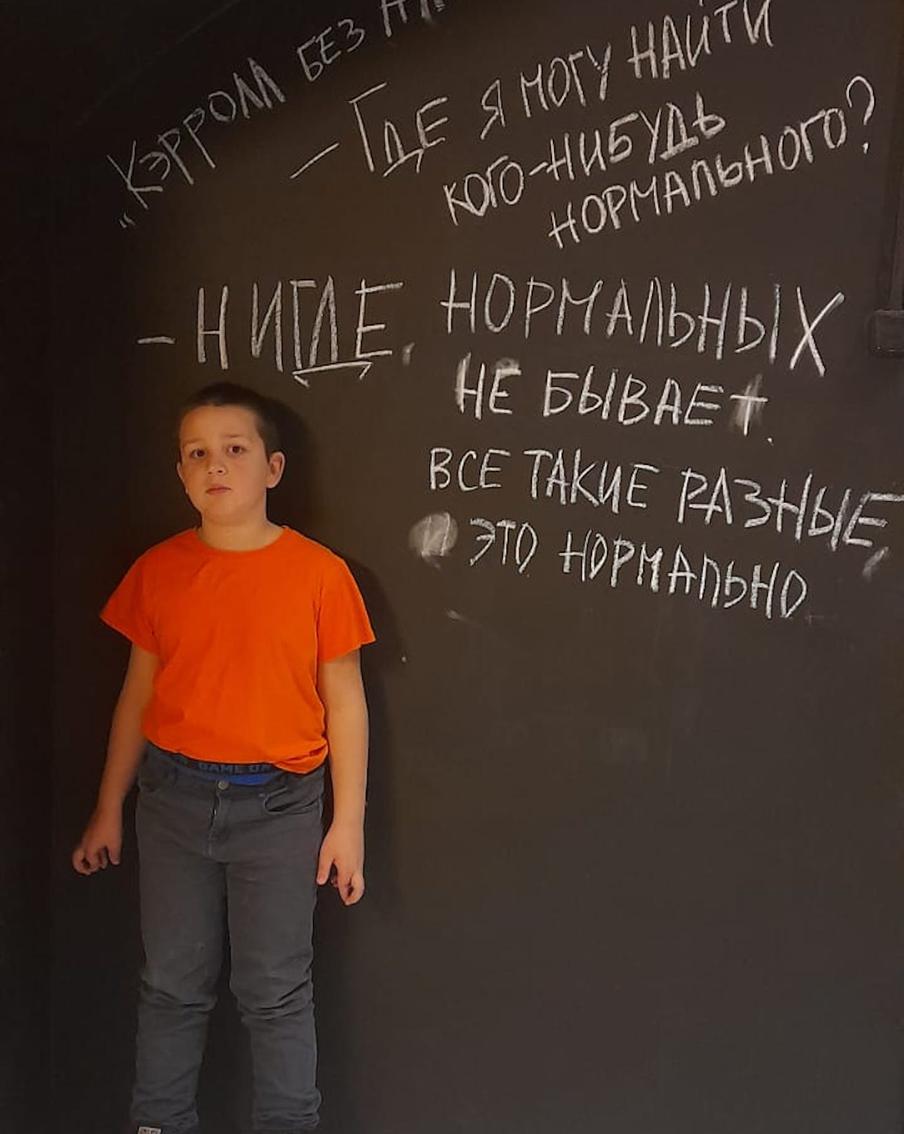 „Кэрролл БЕЗ
– ГДЕ Я МОГУ НАЙТИ
КОГО-НИБУДЬ
НОРМАЛЬНОГО?
– НИГДЕ, НОРМАЛЬНЫХ
НЕ БЫВАЕТ.
ВСЕ ТАКИЕ РАЗНЫЕ,
ЭТО НОРМАЛЬНО
GAME ON